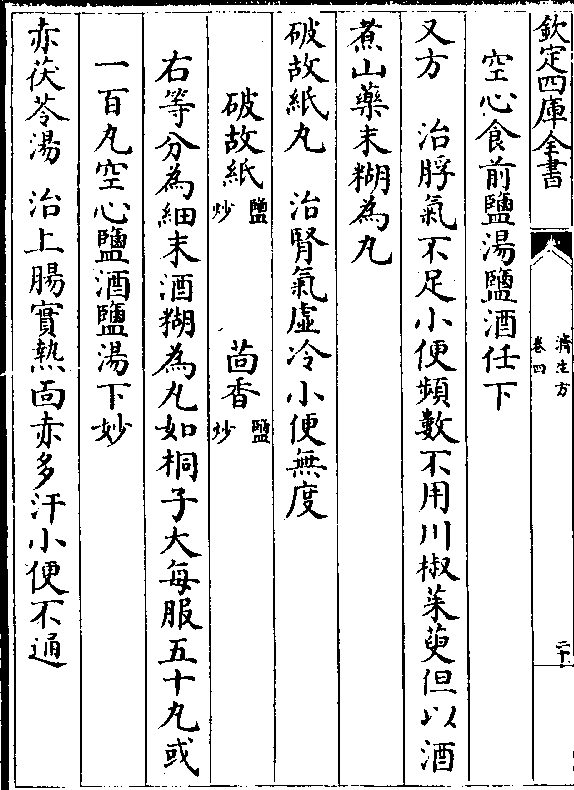 欽定四庫全書
濟生方
卷四
二十
空心食前鹽湯鹽酒任下
又方　治脬氣不足小便頻數不用川椒茱萸但以酒
煮山藥末糊為丸
破故紙丸　治腎氣虛冷小便無度
破故紙鹽炒　茴香鹽炒
右等分為細末酒糊為丸如桐子大每服五十丸或
一百丸空心鹽酒鹽湯下妙
赤茯苓湯　治上腸實熱面赤多汗小便不通